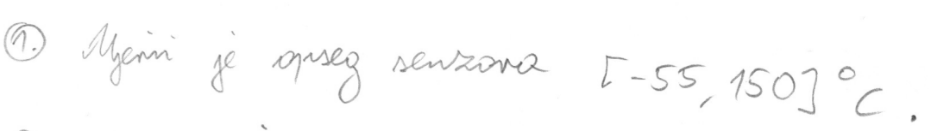 1. Mjerni je opseg senzora [-55, 150] °C.